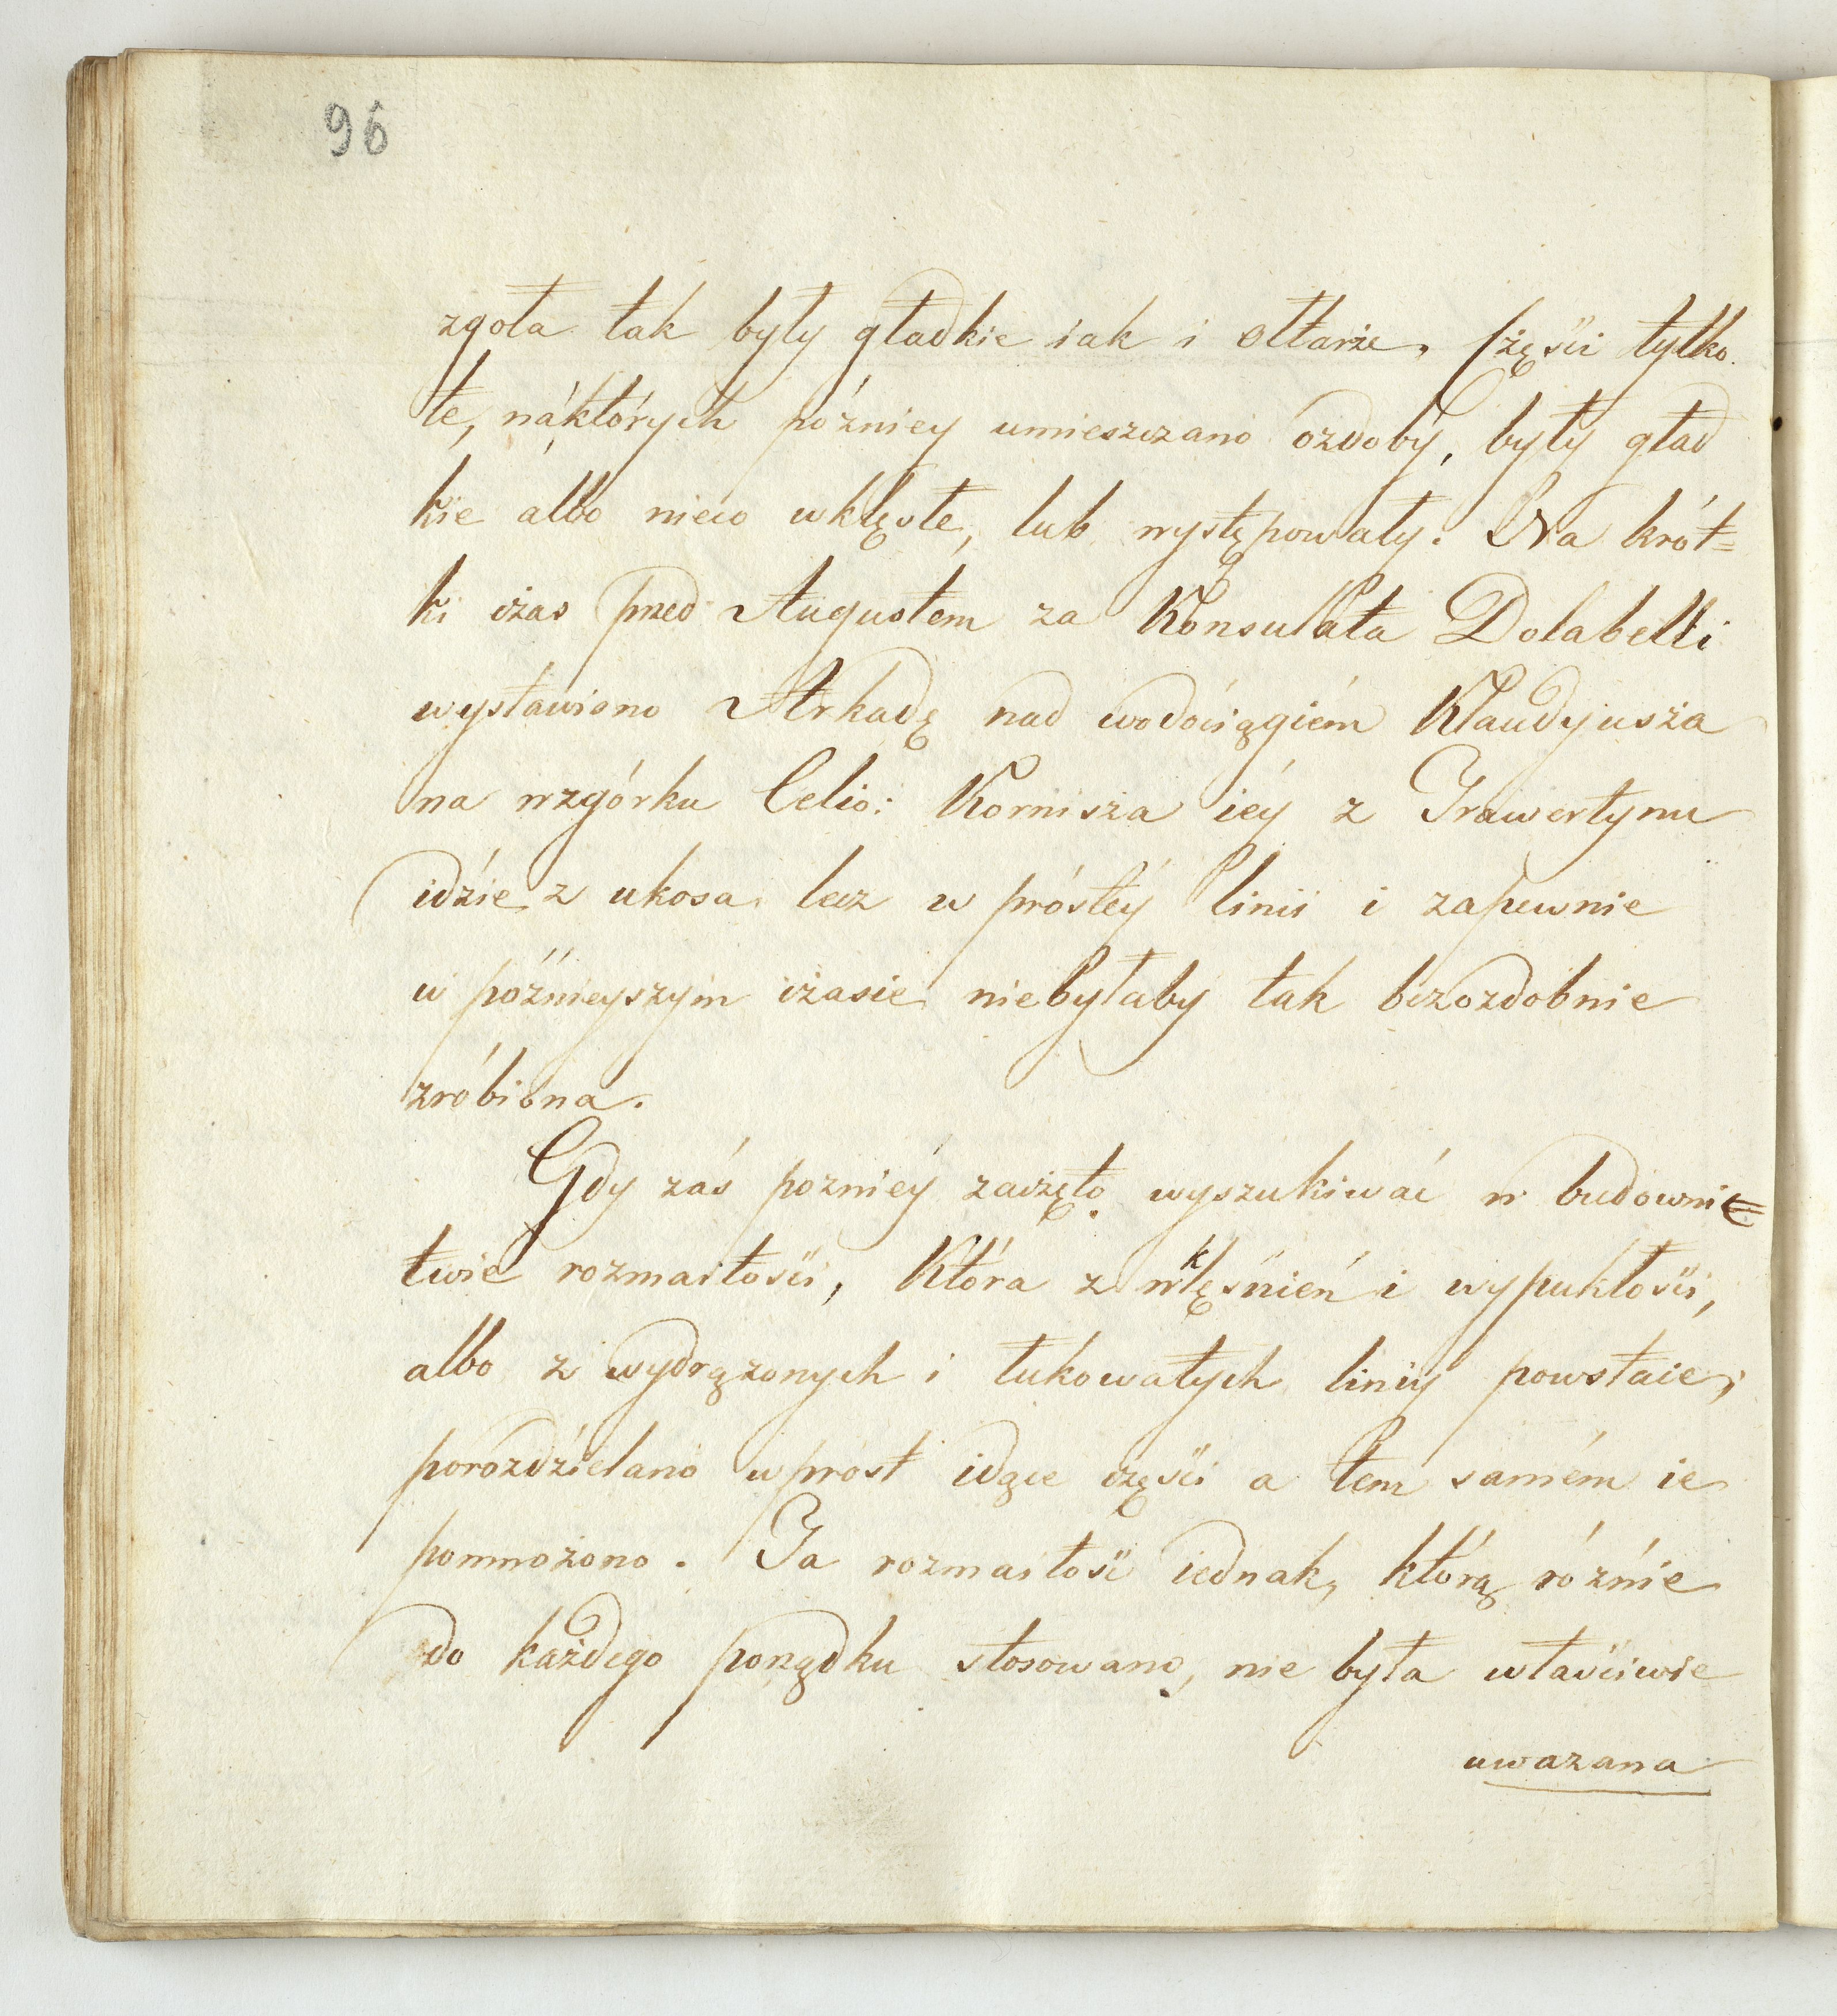 96
zgoła tak były gładkie iak i ołtarze, części tylko
te, na których późniey umieszczano ozdoby, były gład
kie albo nieco wklęsłe, lub występowały. Na krót=
ki czas przed Augustem za Konsulata Dolabelli
wystawiono Arkadę nad wodociągiém Klaudyusza
na wzgórku Celio: Kornisza iéy z Trawertynu
idzie z ukosa lecz w prostéy linii i zapewnie
w późnieyszym czasie niebyłaby tak bezozdobnie
zrobiona.
Gdy zaś pozniéy zaczęto wyszukiwać w budownic=
twie rozmaitości, Która z wklęśnień i wypukłości,
albo z wydrążonych i łukowatych liniy powstaie,
porozdzielano wprost idące części a tem samém ie
pomnożono. Ta rozmaitość iednak, którą róznie
do każdego porządku stosowano, nie była właściwie
uwazana